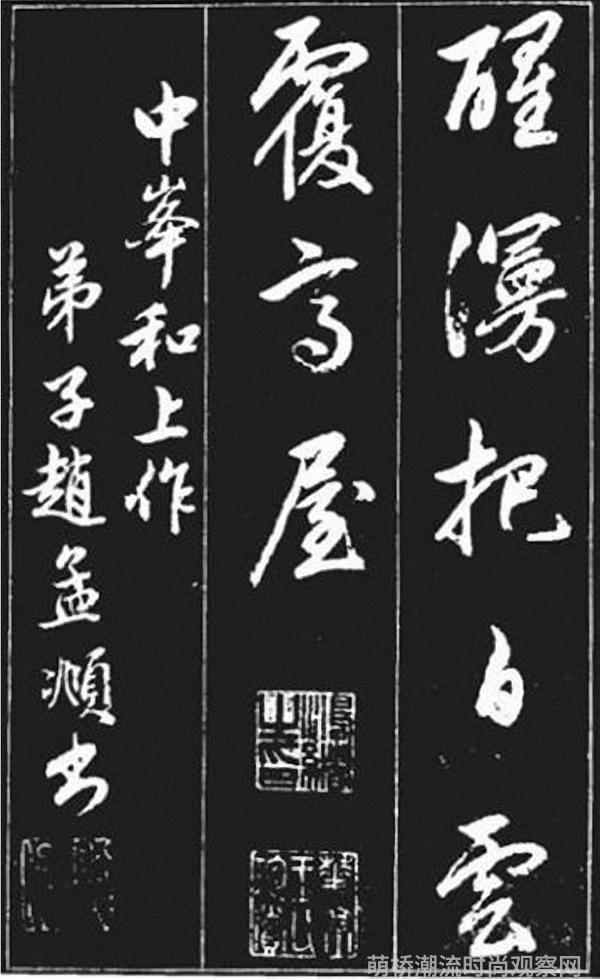 醒漫把白雲
覆高屋
中峯和上作
弟子趙孟頫书
萌桥潮流时尚观察网